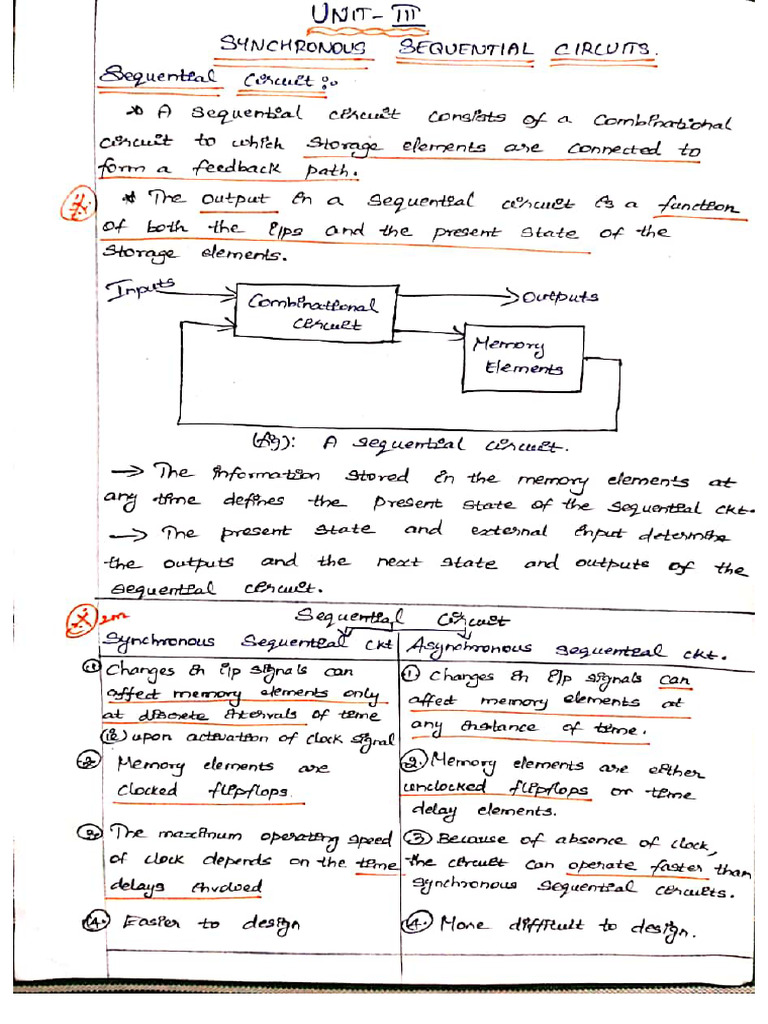 UNIT-III
SYNCHRONOUS SEQUENTIAL CIRCUITS.
Sequential Circuit:-
* A sequential circuit consists of a combinational
circuit to which storage elements are connected to
form a feedback path.
* The output in a sequential circuit is a function
of both the i/ps and the present state of the
storage elements.
Inputs
Combinational
circuit
Outputs
Memory
Elements
(fig): A sequential circuit.
→ The information stored in the memory elements at
any time defines the present state of the sequential ckt.
→ The present state and external input determine
the outputs and the next state and outputs of the
sequential circuit.
2m
Sequential Circuit
Synchronous Sequential ckt
Asynchronous sequential ckt.
① Changes in i/p signals can
affect memory elements only
at discrete intervals of time
(ie) upon activation of clock signal
① Changes in i/p signals can
affect memory elements at
any instance of time.
② Memory elements are
clocked flipflops.
② Memory elements are either
unclocked flipflops or time
delay elements.
③ The maximum operating speed
of clock depends on the time
delays involved
③ Because of absence of clock,
the circuit can operate faster than
synchronous sequential circuits.
④. Easier to design
④. More difficult to design.